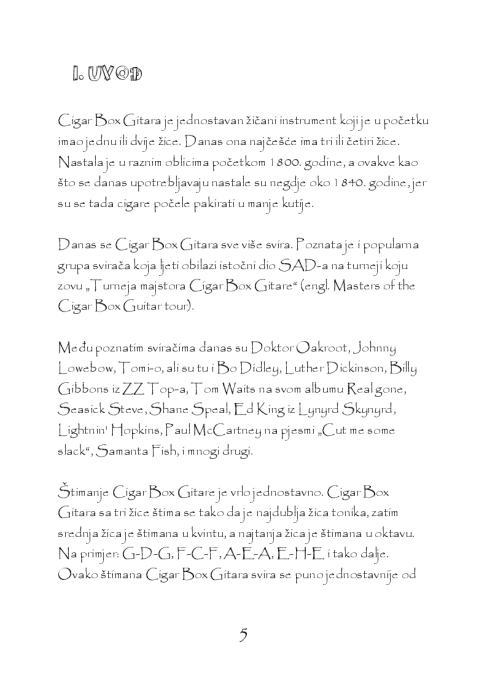 I. UVOD
Cigar Box Gitara je jednostavan žičani instrument koji je u početku
imao jednu ili dvije žice. Danas ona najčešće ima tri ili četiri žice.
Nastala je u raznim oblicima početkom 1800. godine, a ovakve kao
što se danas upotrebljavaju nastale su negdje oko 1840. godine, jer
su se tada cigare počele pakirati u manje kutije.
Danas se Cigar Box Gitara sve više svira. Poznata je i popularna
grupa svirača koja ljeti obilazi istočni dio SAD-a na turneji koju
zovu „Turneja majstora Cigar Box Gitare“ (engl. Masters of the
Cigar Box Guitar tour).
Među poznatim sviračima danas su Doktor Oakroot, Johnny
Lowebow, Tomi-o, ali su tu i Bo Didley, Luther Dickinson, Billy
Gibbons iz ZZ Top-a, Tom Waits na svom albumu Real gone,
Seasick Steve, Shane Speal, Ed King iz Lynyrd Skynyrd,
Lightnin' Hopkins, Paul McCartney na pjesmi „Cut me some
slack“, Samanta Fish, i mnogi drugi.
Štimanje Cigar Box Gitare je vrlo jednostavno. Cigar Box
Gitara sa tri žice štima se tako da je najdublja žica tonika, zatim
srednja žica je štimana u kvintu, a najtanja žica je štimana u oktavu.
Na primjer: G-D-G, F-C-F, A-E-A, E-H-E i tako dalje.
Ovako štimana Cigar Box Gitara svira se puno jednostavnije od
5